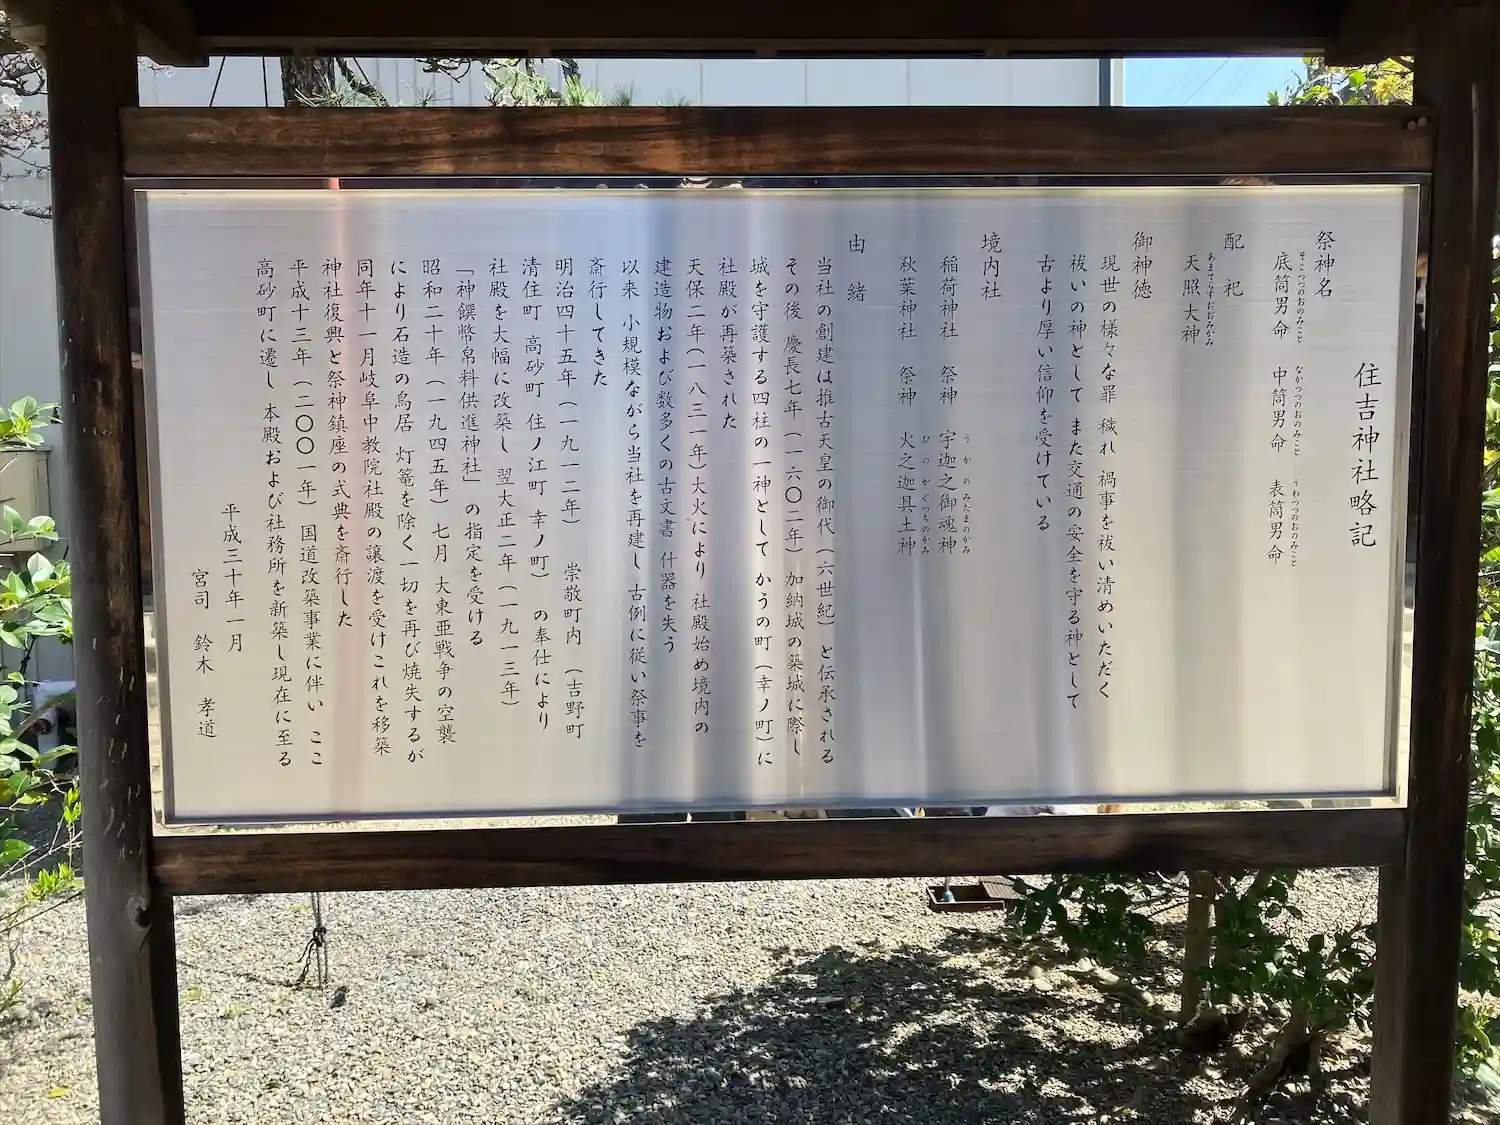 住吉神社略記
祭神名
底筒男命 中筒男命 表筒男命
そこつつのおのみこと なかつつのおのみこと うわつつのおのみこと
配祀
天照大神
あまてらすおおみかみ
御神徳
現世の様々な罪 穢れ 禍事を祓い清めいただく
祓いの神として また交通の安全を守る神として
古より厚い信仰を受けている
境内社
稲荷神社 祭神 宇迦之御魂神
うかのみたまのかみ
秋葉神社 祭神 火之迦具土神
ひのかぐつちのかみ
由緒
当社の創建は推古天皇の御代(六世紀)と伝承される
その後 慶長七年(一六〇二年)加納城の築城に際し
城を守護する四柱の一神として かうの町(幸ノ町)に
社殿が再築された
天保二年(一八三一年)大火により 社殿始め境内の
建造物および数多くの古文書 什器を失う
以来 小規模ながら当社を再建し 古例に従い祭事を
斎行してきた
明治四十五年(一九一二年) 崇敬町内(吉野町
清住町 高砂町 住ノ江町 幸ノ町)の奉仕により
社殿を大幅に改築し 翌大正二年(一九一三年)
「神饌幣帛料供進神社」の指定を受ける
昭和二十年(一九四五年)七月 大東亜戦争の空襲
により石造の鳥居 灯篭を除く一切を再び焼失するが
同年十一月岐阜中教院社殿の譲渡を受けこれを移築
神社復興と祭神鎮座の式典を斎行した
平成十三年(二〇〇一年)国道改築事業に伴い ここ
高砂町に遷し 本殿および社務所を新築し現在に至る
平成三十年一月
宮司 鈴木 孝道